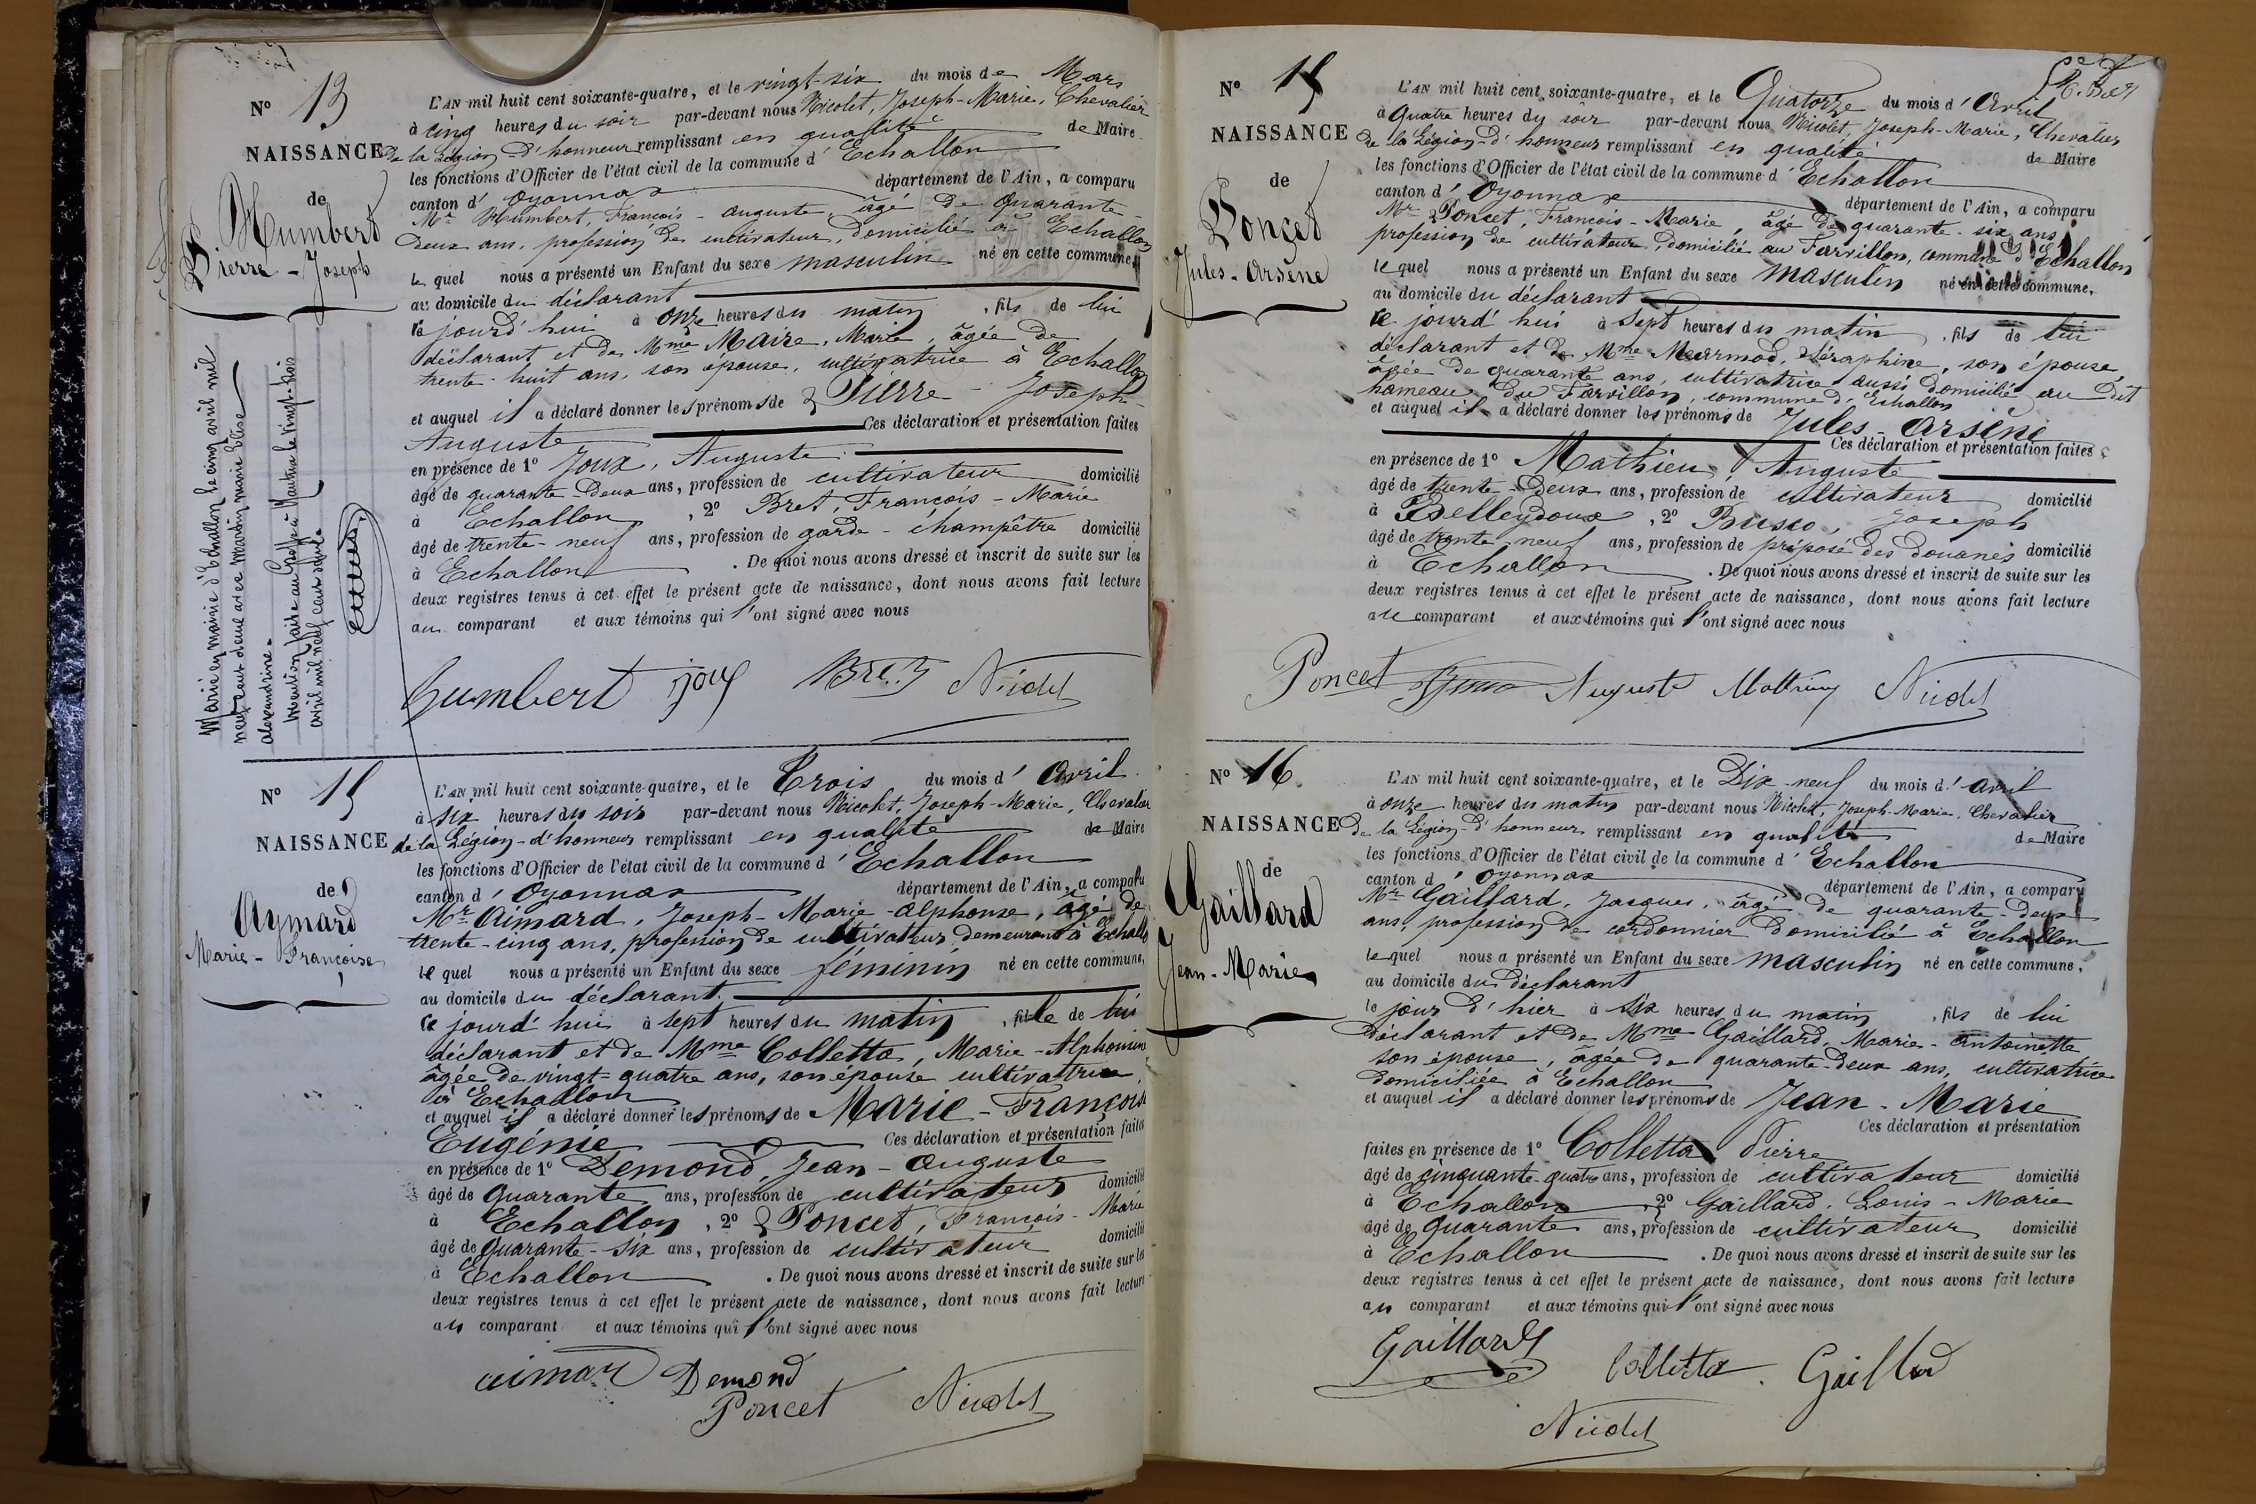 N° 13
NAISSANCE
de
Humbert
Pierre - Joseph
Marié en mairie d'Echallon le cinq avril mil
neuf cent deux avec Martin Marie Elise
Alexandrine.
Mention faite au Greffe à Nantua le vingt-trois
avril mil neuf cent
L'AN mil huit cent soixante-quatre, et le vingt-six du mois de Mars
à cinq heures du soir par-devant nous Nicolet, Joseph-Marie, Chevalier
de la Légion-d'honneur remplissant en qualité de Maire
les fonctions d'Officier de l'état civil de la commune d'Echallon
canton d'Oyonnax département de l'Ain, a comparu
Mr Humbert, François-auguste, âgé de quarante-
deux ans, profession de cultivateur, domicilié à Echallon
le quel nous a présenté un Enfant du sexe masculin né en cette commune,
au domicile du déclarant
ce jourd'hui à onze heures du matin, fils de lui
déclarant et de Mme Maire, Marie, âgée de
trente-huit ans, son épouse, cultivatrice à Echallon
et auquel il a déclaré donner les prénoms de Pierre - Joseph-
Auguste Ces déclaration et présentation faites
en présence de 1° Joux, Auguste
âgé de quarante-deux ans, profession de cultivateur domicilié
à Echallon, 2° Bret, François-Marie
âgé de trente-neuf ans, profession de garde-champêtre domicilié
à Echallon. De quoi nous avons dressé et inscrit de suite sur les
deux registres tenus à cet effet le présent acte de naissance, dont nous avons fait lecture
au comparant et aux témoins qui l'ont signé avec nous
humbert joux Bret Nicolet
N° 15
NAISSANCE
de
Aymard
Marie-Françoise
L'AN mil huit cent soixante-quatre, et le Trois du mois d'avril
à six heures du soir par-devant nous Nicolet, Joseph-Marie, Chevalier
de la Légion-d'honneur remplissant en qualité de Maire
les fonctions d'Officier de l'état civil de la commune d'Echallon
canton d'Oyonnax département de l'Ain, a comparu
Mr Aimard, Joseph-Marie-alphonse, âgé de
trente-cinq ans, profession de cultivateur, demeurant à Echallon
le quel nous a présenté un Enfant du sexe féminin né en cette commune,
au domicile du déclarant.
ce jourd'hui à sept heures du matin, fille de lui
déclarant et de Mme Colletta, Marie-Alphonsine
âgée de vingt-quatre ans, son épouse cultivatrice
à Echallon
et auquel il a déclaré donner les prénoms de Marie-Françoise
Eugénie Ces déclaration et présentation faites
en présence de 1° Demond, Jean-auguste
âgé de quarante ans, profession de cultivateur domicilié
à Echallon, 2° Poncet, François-Marie
âgé de quarante-six ans, profession de cultivateur domicilié
à Echallon. De quoi nous avons dressé et inscrit de suite sur les
deux registres tenus à cet effet le présent acte de naissance, dont nous avons fait lecture
au comparant et aux témoins qui l'ont signé avec nous
aimard Demond
Poncet Nicolet
N° 15
NAISSANCE
de
Poncet
Jules-Arsène
L'AN mil huit cent soixante-quatre, et le Quatorze du mois d'avril
à quatre heures du soir par-devant nous Nicolet, Joseph-Marie, Chevalier
de la Légion-d'honneur remplissant en qualité de Maire
les fonctions d'Officier de l'état civil de la commune d'Echallon
canton d'Oyonnax département de l'Ain, a comparu
Mr Poncet, François-Marie, âgé de quarante-six ans,
profession de cultivateur, domicilié au Favillon, commune d'Echallon
le quel nous a présenté un Enfant du sexe masculin né en cette commune,
au domicile du déclarant
ce jourd'hui à sept heures du matin, fils de lui
déclarant et de Mme Meurmod, Séraphine, son épouse,
âgée de quarante ans, cultivatrice aussi domicilié au dit
hameau du Favillon, commune d'Echallon
et auquel il a déclaré donner les prénoms de Jules-Arsène
Ces déclaration et présentation faites
en présence de 1° Mathieu, Auguste
âgé de trente-deux ans, profession de cultivateur domicilié
à Belleydoux, 2° Busso, Joseph
âgé de trente neuf ans, profession de préposé des douanes domicilié
à Echallon. De quoi nous avons dressé et inscrit de suite sur les
deux registres tenus à cet effet le présent acte de naissance, dont nous avons fait lecture
au comparant et aux témoins qui l'ont signé avec nous
Poncet Busso Auguste Mathieu Nicolet
N° 16
NAISSANCE
de
Gaillard
Jean-Marie
L'AN mil huit cent soixante-quatre, et le Dix-neuf du mois d'avril
à onze heures du matin par-devant nous Nicolet, Joseph-Marie, Chevalier
de la Légion-d'honneur remplissant en qualité de Maire
les fonctions d'Officier de l'état civil de la commune d'Echallon
canton d'Oyonnax département de l'Ain, a comparu
Mr Gaillard, Jacques, âgé de quarante-deux
ans, profession de cordonnier domicilié à Echallon
le quel nous a présenté un Enfant du sexe masculin né en cette commune,
au domicile du déclarant
le jour d'hier à six heures du matin, fils de lui
déclarant et de Mme Gaillard, Marie-antoinette
son épouse, âgée de quarante-deux ans, cultivatrice
domiciliée à Echallon
et auquel il a déclaré donner les prénoms de Jean-Marie
Ces déclaration et présentation
faites en présence de 1° Colletta Pierre
âgé de cinquante-quatre ans, profession de cultivateur domicilié
à Echallon, 2° Gaillard, Louis-Marie
âgé de quarante ans, profession de cultivateur domicilié
à Echallon. De quoi nous avons dressé et inscrit de suite sur les
deux registres tenus à cet effet le présent acte de naissance, dont nous avons fait lecture
au comparant et aux témoins qui l'ont signé avec nous
Gaillard Colletta Gaillard
Nicolet